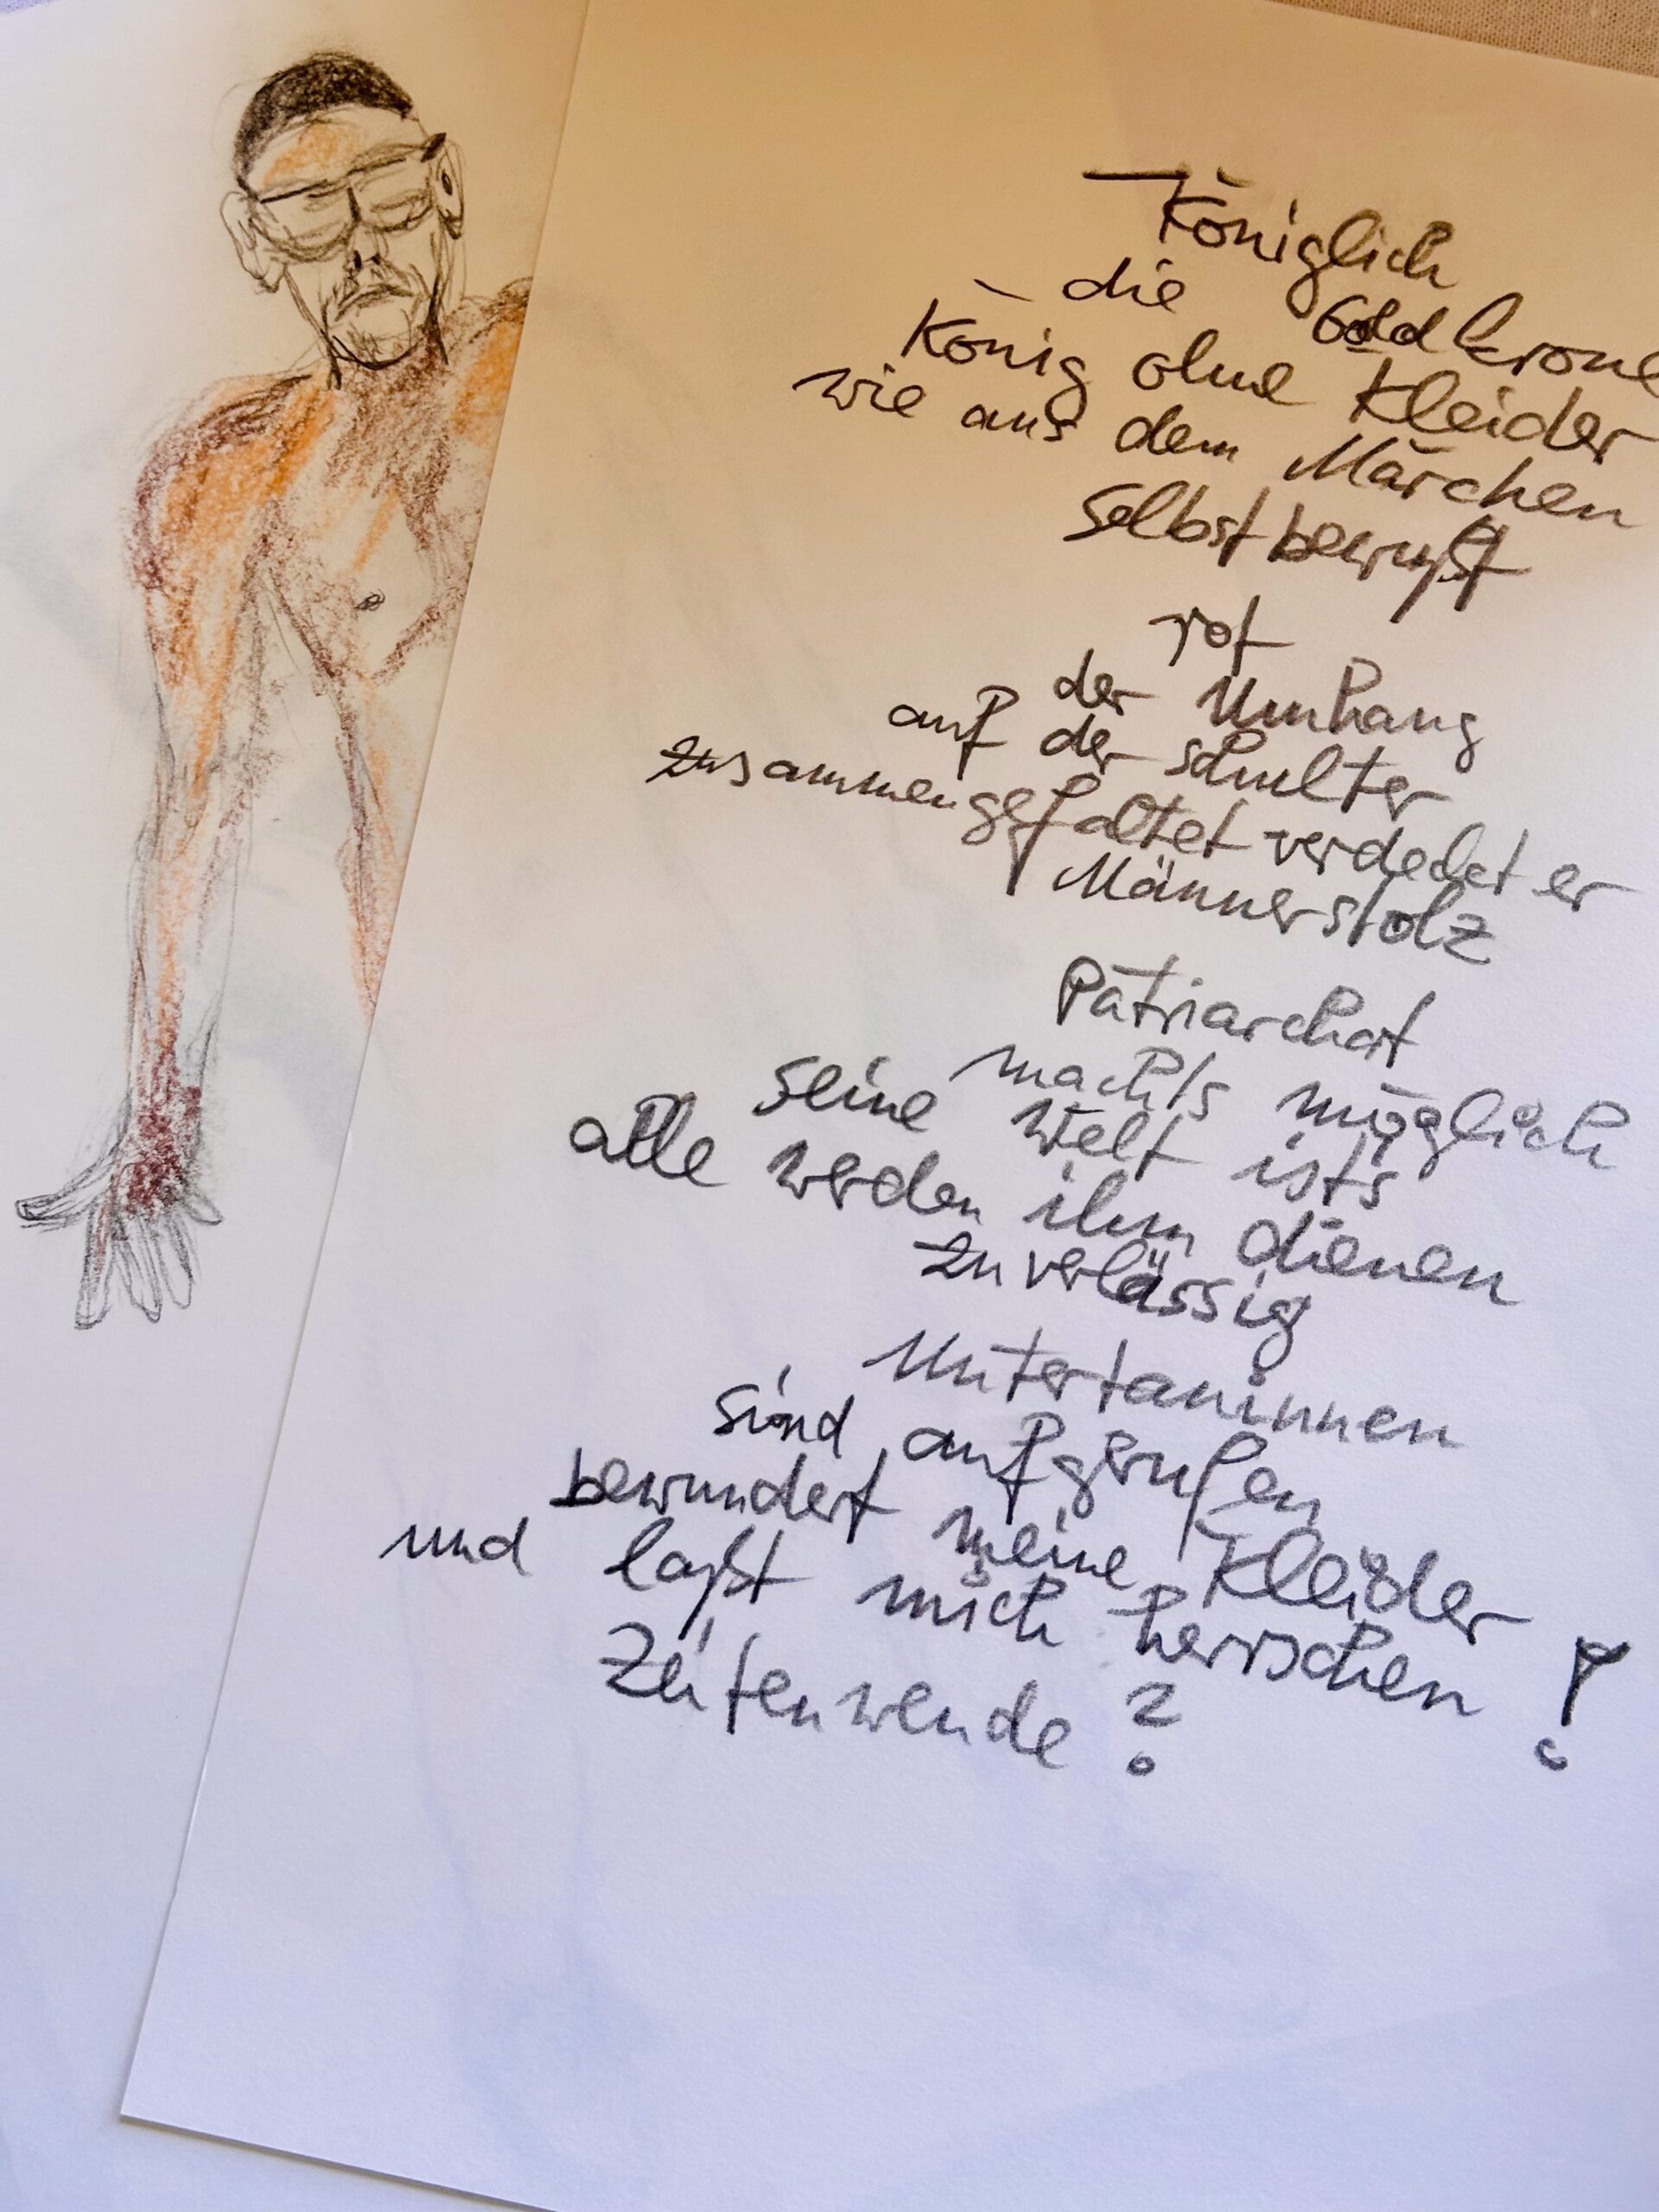 Königlich
die Goldkrone
König ohne Kleider
wie aus dem Märchen
Selbstbewußt
rot
der Umhang
auf der Schulter
zusammengefaltet verdeckt er
Männerstolz
Patriarchat
machts möglich
seine Welt ists
alle werden ihm dienen
zuverlässig
Untertaninnen
sind aufgerufen
bewundert meine Kleider
und laßt mich herrschen!
Zeitenwende?